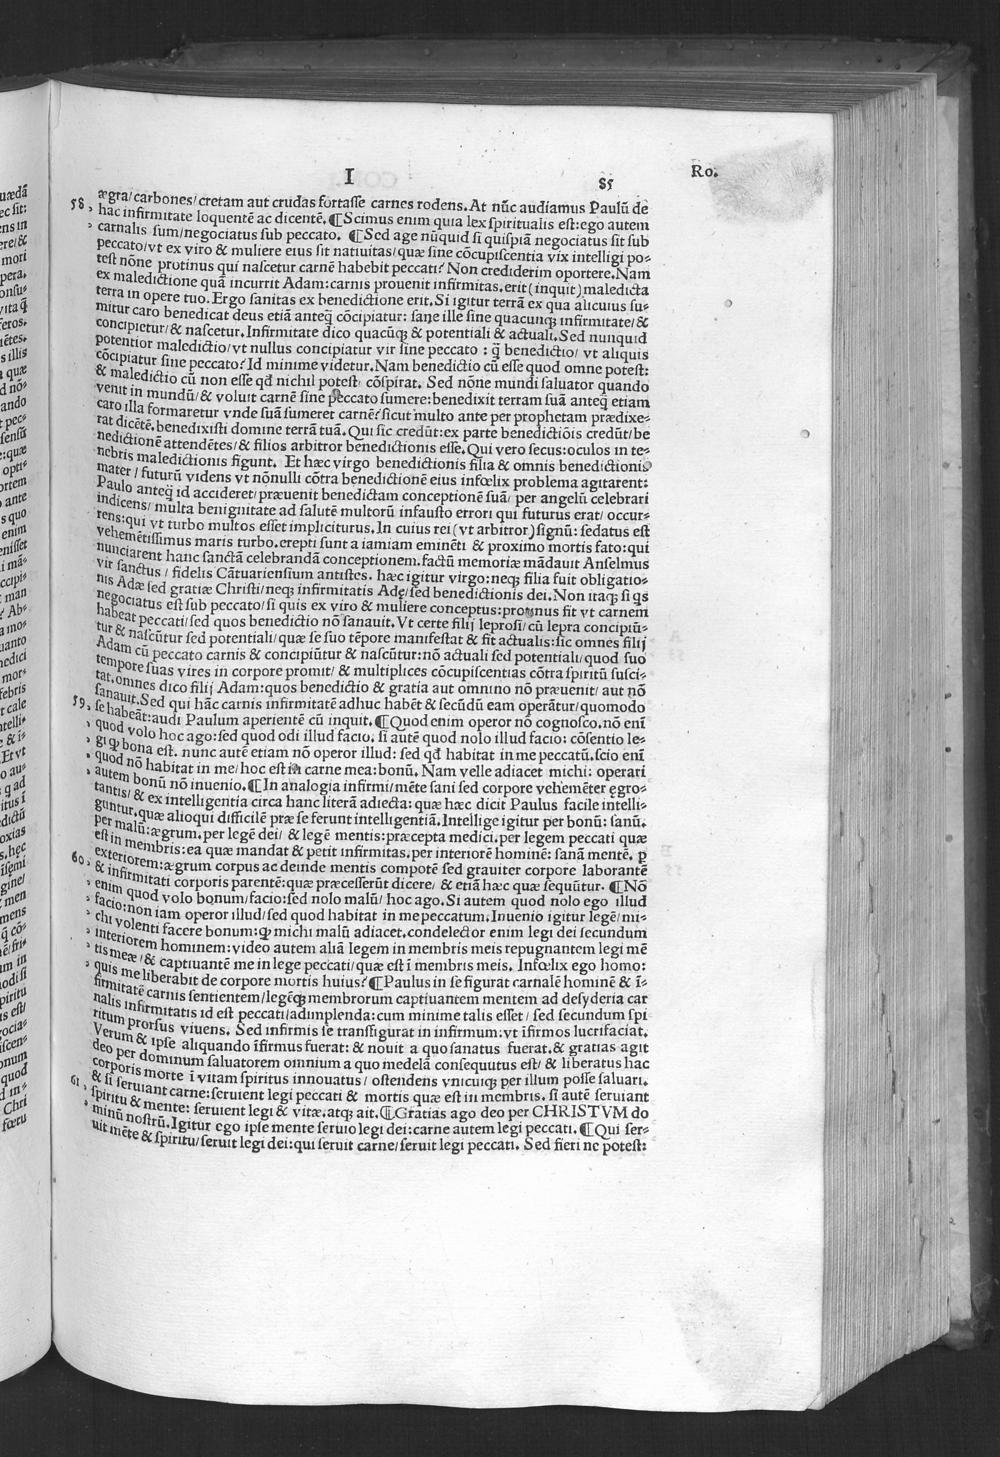 I 85 Ro.
ægra/carbones/cretam aut crudas fortasse carnes rodens. At nũc audiamus Paulũ de
58 , hac infirmitate loquentẽ ac dicentẽ. ¶Scimus enim quia lex spiritualis est: ego autem
, carnalis sum/negociatus sub peccato. ¶Sed age nũquid si quispiã negociatus sit sub
peccato/vt ex viro & muliere eius sit natiuitas/quæ sine cõcupiscentia vix intelligi po-
test nõne protinus qui nascetur carnẽ habebit peccati? Non crediderim oportere. Nam
ex maledictione quã incurrit Adam: carnis prouenit infirmitas. erit (inquit) maledicta
terra in opere tuo. Ergo sanitas ex benedictione erit. Si igitur terrã ex qua alicuius su-
mitur caro benedicat deus etiã anteq̃ cõcipiatur: sane ille sine quacunqꝫ infirmitate/&
concipietur/& nascetur. Infirmitate dico quacũqꝫ & potentiali & actuali. Sed nunquid
potentior maledictio/vt nullus concipiatur vir sine peccato : q̃ benedictio/ vt aliquis
cõcipiatur sine peccato? Id minime videtur. Nam benedictio cũ esse quod omne potest:
& maledictio cũ non esse qđ nichil potest/ cõspirat. Sed nõne mundi saluator quando
venit in mundũ/& voluit carnẽ sine peccato sumere: benedixit terram suã anteq̃ etiam
caro illa formaretur vnde suã sumeret carnẽ? sicut multo ante per prophetam prædixe-
rat dicẽtẽ. benedixisti domine terrã tuã. Qui sic credũt: ex parte benedictiõis credũt/be
nedictionẽ attendẽtes/& filios arbitror benedictionis esse. Qui vero secus: oculos in te-
nebris maledictionis figunt. Et hæc virgo benedictionis filia & omnis benedictionis
mater / futurũ videns vt nõnulli cõtra benedictionẽ eius infœlix problema agitarent:
Paulo anteq̃ id accideret/præuenit benedictam conceptionẽ suã/ per angelũ celebrari
indicens/ multa benignitate ad salutẽ multorũ infausto errori qui futurus erat/ occur-
rens: qui vt turbo multos esset impliciturus. In cuius rei (vt arbitror) signũ: sedatus est
vehemẽtissimus maris turbo. erepti sunt a iamiam eminẽti & proximo mortis fato: qui
nunciarent hanc sanctã celebrandã conceptionem. factũ memoriæ mãdauit Anselmus
vir sanctus / fidelis Cãtuariensium antistes. hæc igitur virgo: neqꝫ filia fuit obligatio-
nis Adæ sed gratiæ Christi/neqꝫ infirmitatis Adę/sed benedictionis dei. Non itaqꝫ si qs
negociatus est sub peccato/si quis ex viro & muliere conceptus: protinus sit vt carnem
habeat peccati/sed quos benedictio nõ sanauit. Vt certe filij leprosi/cũ lepra concipiũ-
tur & nascũtur sed potentiali/quæ se suo tẽpore manifestat & fit actualis: sic omnes filij
Adam cũ peccato carnis & concipiũtur & nascũtur: nõ actuali sed potentiali/quod suo
tempore suas vires in corpore promit/ & multiplices cõcupiscentias cõtra spiritũ susci-
tat. omnes dico filij Adam: quos benedictio & gratia aut omnino nõ præuenit/aut nõ
sanauit. Sed qui hãc carnis infirmitatẽ adhuc habẽt & secũdũ eam operãtur/quomodo
59 , se habeãt: audi Paulum aperientẽ cũ inquit. ¶Quod enim operor nõ cognosco. nõ enĩ
, quod volo hoc ago: sed quod odi illud facio. si autẽ quod nolo illud facio: cõsentio le-
, gi qꝫ bona est. nunc autẽ etiam nõ operor illud: sed qđ habitat in me peccatũ. scio enĩ
, quod nõ habitat in me/hoc est in carne mea: bonũ. Nam velle adiacet michi: operari
, autem bonũ nõ inuenio. ¶In analogia infirmi/mẽte sani sed corpore vehemẽter ęgro-
tantis/& ex intelligentia circa hanc literã adiecta: quæ hæc dicit Paulus facile intelli-
guntur, quæ alioqui difficilẽ præ se ferunt intelligentiã. Intellige igitur per bonũ: sanũ.
per malũ: ægrum. per legẽ dei/ & legẽ mentis: præcepta medici. per legem peccati quæ
est in membris: ea quæ mandat & petit infirmitas. per interiorẽ hominẽ: sanã mentẽ. p
exteriorem: ægrum corpus ac deinde mentis compotẽ sed grauiter corpore laborantẽ
60 , & infirmitati corporis parentẽ: quæ præcesserũt dicere/ & etiã hæc quæ sequũtur. ¶Nõ
, enim quod volo bonum/facio: sed nolo malũ/ hoc ago. Si autem quod nolo ego illud
, facio: non iam operor illud/sed quod habitat in me peccatum. Inuenio igitur legẽ/mi-
, chi volenti facere bonum: qꝫ michi malũ adiacet. condelector enim legi dei secundum
, interiorem hominem: video autem aliã legem in membris meis repugnantem legi mẽ
, tis meæ/& captiuantẽ me in lege peccati/quæ est ĩ membris meis. Infœlix ego homo:
, quis me liberabit de corpore mortis huius? ¶Paulus in se figurat carnalẽ hominẽ & ĩ-
firmitatẽ carnis sentientem/legẽqꝫ membrorum captiuantem mentem ad desyderia car
nalis infirmitatis id est peccati/adimplenda: cum minime talis esset/ sed secundum spi
ritum prorsus viuens. Sed infirmis se transfigurat in infirmum: vt ĩfirmos lucrifaciat.
Verum & ipse aliquando ĩfirmus fuerat: & nouit a quo sanatus fuerat. & gratias agit
deo per dominum saluatorem omnium a quo medelã consequutus est/ & liberatus hac
corporis morte ĩ vitam spiritus innouatus/ ostendens vnicuiqꝫ per illum posse saluari.
& si seruiant carne: seruient legi peccati & mortis quæ est in membris. si autẽ seruiant
61 , spiritu & mente: seruient legi & vitæ. atqꝫ ait. ¶Gratias ago deo per CHRISTVM do
, minũ nostrũ. Igitur ego ipse mente seruio legi dei: carne autem legi peccati. ¶Qui ser-
uit mẽte & spiritu/seruit legi dei: qui seruit carne/seruit legi peccati. Sed fieri ne potest: